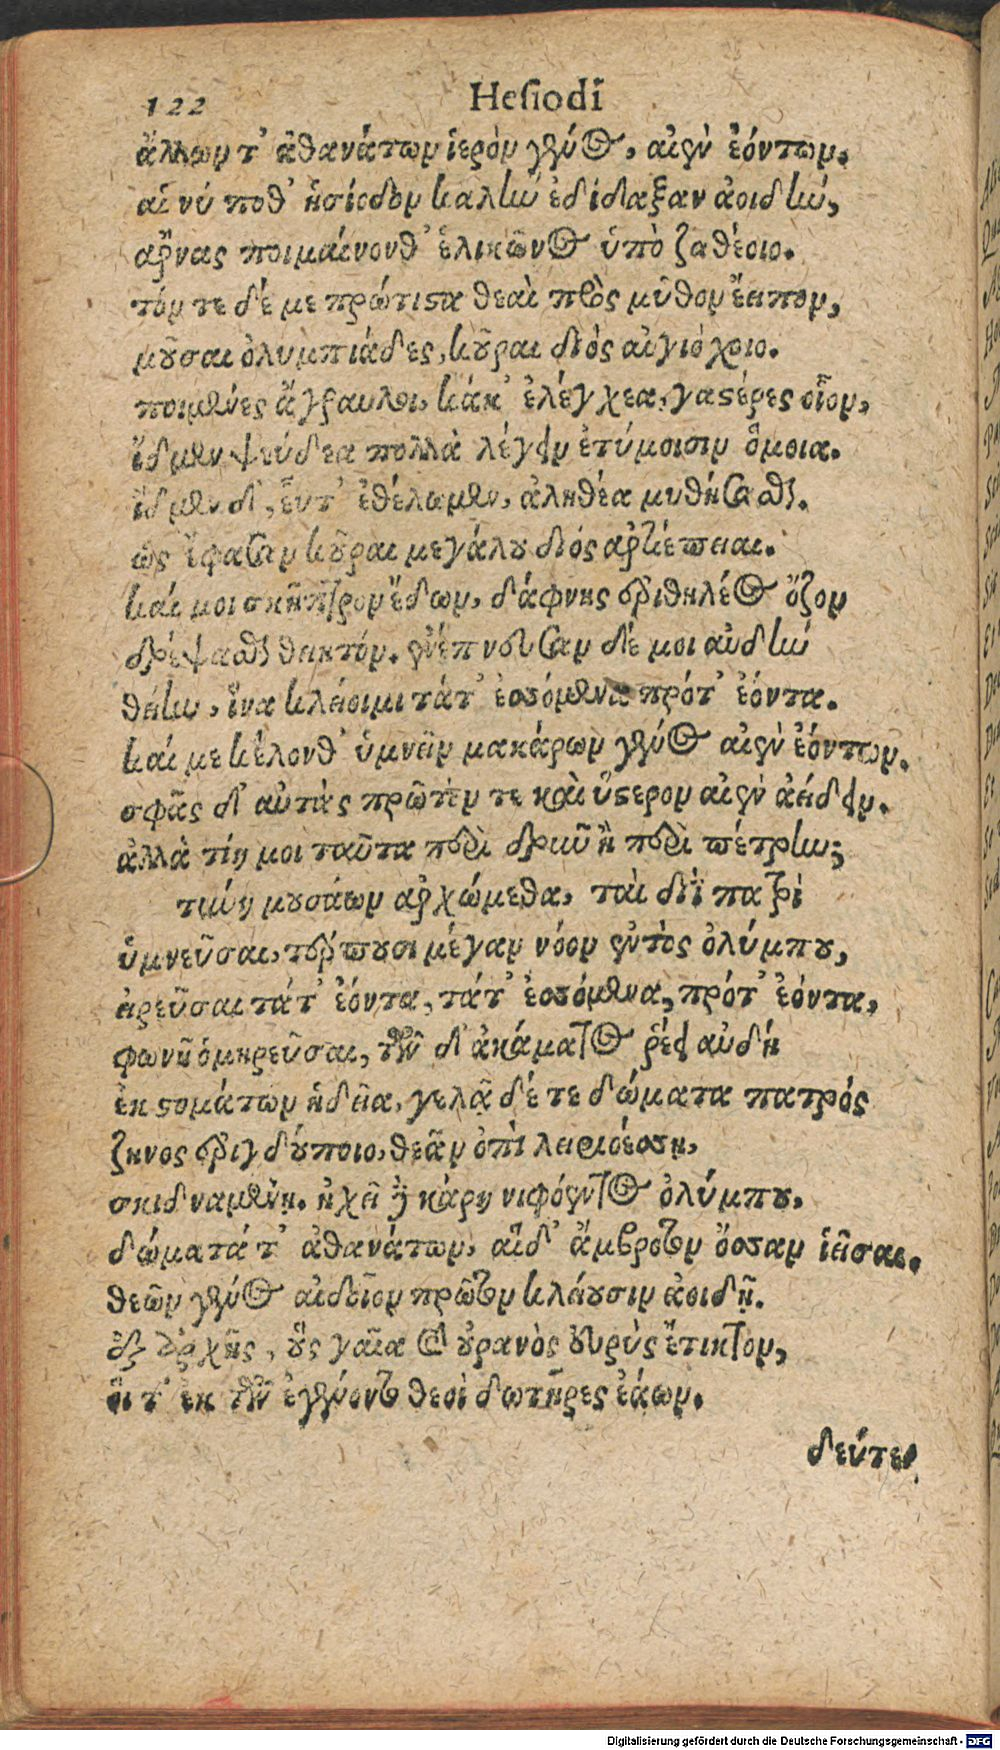 122 Hesiodi
ἄλλων τ' ἀθανάτων ἱερὸν γένος, αἰὲν ἐόντων.
αἵ νύ ποθ' ἡσίοδον καλὴν ἐδίδαξαν ἀοιδὴν,
ἄρνας ποιμαίνονθ' ἑλικῶνος ὑπὸ ζαθέοιο.
τόν τε δέ με πρώτιστα θεαὶ πρὸς μῦθον ἔειπον,
μοῦσαι ὀλυμπιάδες, κοῦραι διὸς αἰγιόχοιο.
ποιμένες ἄγραυλοι, κάκ' ἐλέγχεα, γαστέρες οἶον,
ἴδμεν ψεύδεα πολλὰ λέγειν ἐτύμοισιν ὅμοια.
ἴδμεν δ', εὖτ' ἐθέλωμεν, ἀληθέα μυθήσασθαι.
ὣς ἔφασαν κοῦραι μεγάλου διός ἀρτιέπειαι.
καί μοι σκῆπτρον ἔδων, δάφνης ἐριθηλέος ὄζον
δρέψασθαι θηκτόν. ἐνέπνευσαν δέ μοι αὐδὴν
θείην, ἵνα κλείοιμι τάτ' ἐσσόμενα πρότ' ἐόντα.
καί με κέλονθ' ὑμνεῖν μακάρων γένος αἰὲν ἐόντων.
σφᾶς δ' αὐτὰς πρῶτόν τε καὶ ὕστερον αἰὲν ἀείδειν.
ἀλλὰ τίη μοι ταῦτα περὶ δρυῦ ἢ περὶ πέτρην;
τύνη μουσάων ἀρχώμεθα, ταὶ διῒ πατρὶ
ὑμνεῦσαι, τέρπουσι μέγαν νόον ἐντὸς ὀλύμπου,
εἰρεῦσαι τάτ' ἐόντα, τάτ' ἐσσόμενα, πρότ' ἐόντα,
φωνῇ ὁμηρεῦσαι, τῶν δ' ἀκάματος ῥέει αὐδὴ
ἐκ στομάτων ἡδεῖα. γελᾷ δέ τε δώματα πατρός
ζηνος ἐριγδούποιο, θεᾶν ὀπὶ λειριοέσσῃ,
σκιδναμένῃ. ἠχεῖ δὲ κάρη νιφόεντος ὀλύμπου.
δώματά τ' ἀθανάτων, αἵδ' ἄμβροτον ὄσσαν ἱεῖσαι.
θεῶν γένος αἰδοῖον πρῶτον κλείουσιν ἀοιδῇ.
ἐξ ἀρχῆς, οὓς γαῖα καὶ οὐρανὸς εὐρὺς ἔτικτον,
οἵ τ' ἐκ τῶν ἐγένοντο θεοὶ δωτῆρες ἐάων.
δεύτερ
Digitalisierung gefördert durch die Deutsche Forschungsgemeinschaft - DFG